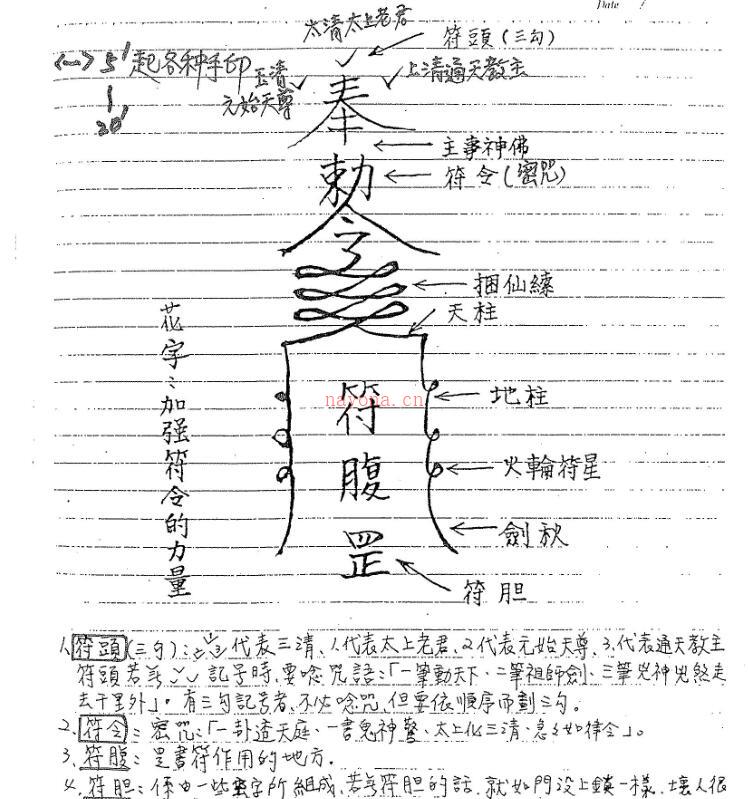 Date /
太清太上老君
符頭(三勾)
<一> 5' 起各种手印
20'
玉清
元始天尊
上清通天教主
奉
主事神佛
勅
符令(密咒)
令
捆仙繩
天柱
花字:加强符令的力量
符
地柱
nayona.cn
腹
火輪符星
劍秋
罡
符胆
1、符頭(三勾):代表三清、1代表太上老君、2代表元始天尊、3、代表通天教主
符頭若 記号時,要唸咒語:「一筆動天下、二筆祖師劍、三筆兇神兇煞走
去千里外」。有三勾記号者、不必唸咒,但要依順序而劃三勾。
2、符令:密咒:「一卦透天庭、一書鬼神驚、太上化三清、急々如律令」。
3、符腹:是書符作用的地方.
4、符胆:係由一些 字所組成,若無符胆的話,就如門没上鎖一樣,壞人很